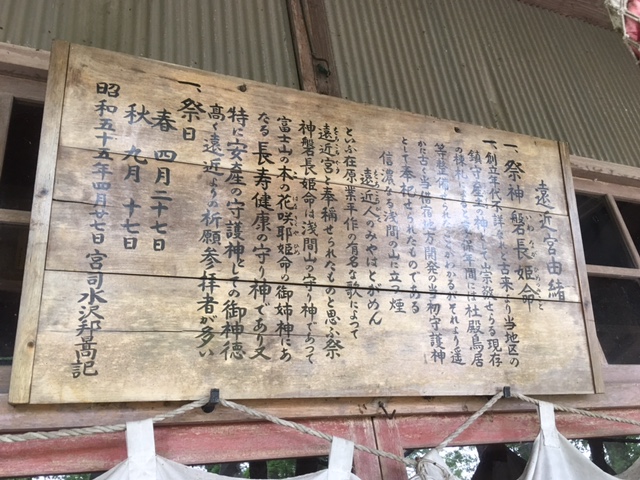 遠近宮由緒
一、祭神 磐長姫命
一、創立年代不詳なれど古来より当地区の
鎮守産土の神として崇敬せらる現存
の棟札によると安永年間には社殿鳥居
等整備されたことがわかるがそれより遥
かに古く当借宿地方開発の当初守護神
として奉祀せられたものである
信濃なる浅間の山に立つ煙
遠近人のみやはとがめん
といふ在原業平作の有名な歌によって
遠近宮と奉称せられたものと思ふ祭
神磐長姫命は浅間山の守り神であって
富士山の木の花咲耶姫命の御姉神にあ
たる長寿健康の守り神であり又
特に安産の守護神としての御神徳
高く遠近よりの祈願参拝者が多い
一、祭日
春 四月二十七日
秋 九月 十七日
昭和五十五年四月廿七日 宮司水沢邦暠記